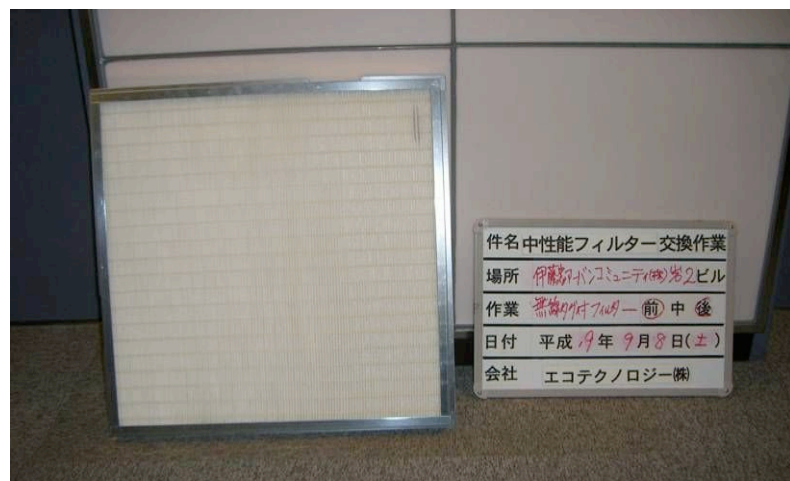 件名 中性能フィルター交換作業
場所 伊藤忠アーバンコミュニティ(株) 2ビル
作業 フィルター 前 中 後
日付 平成 19年 9月 8日(土)
会社 エコテクノロジー㈱